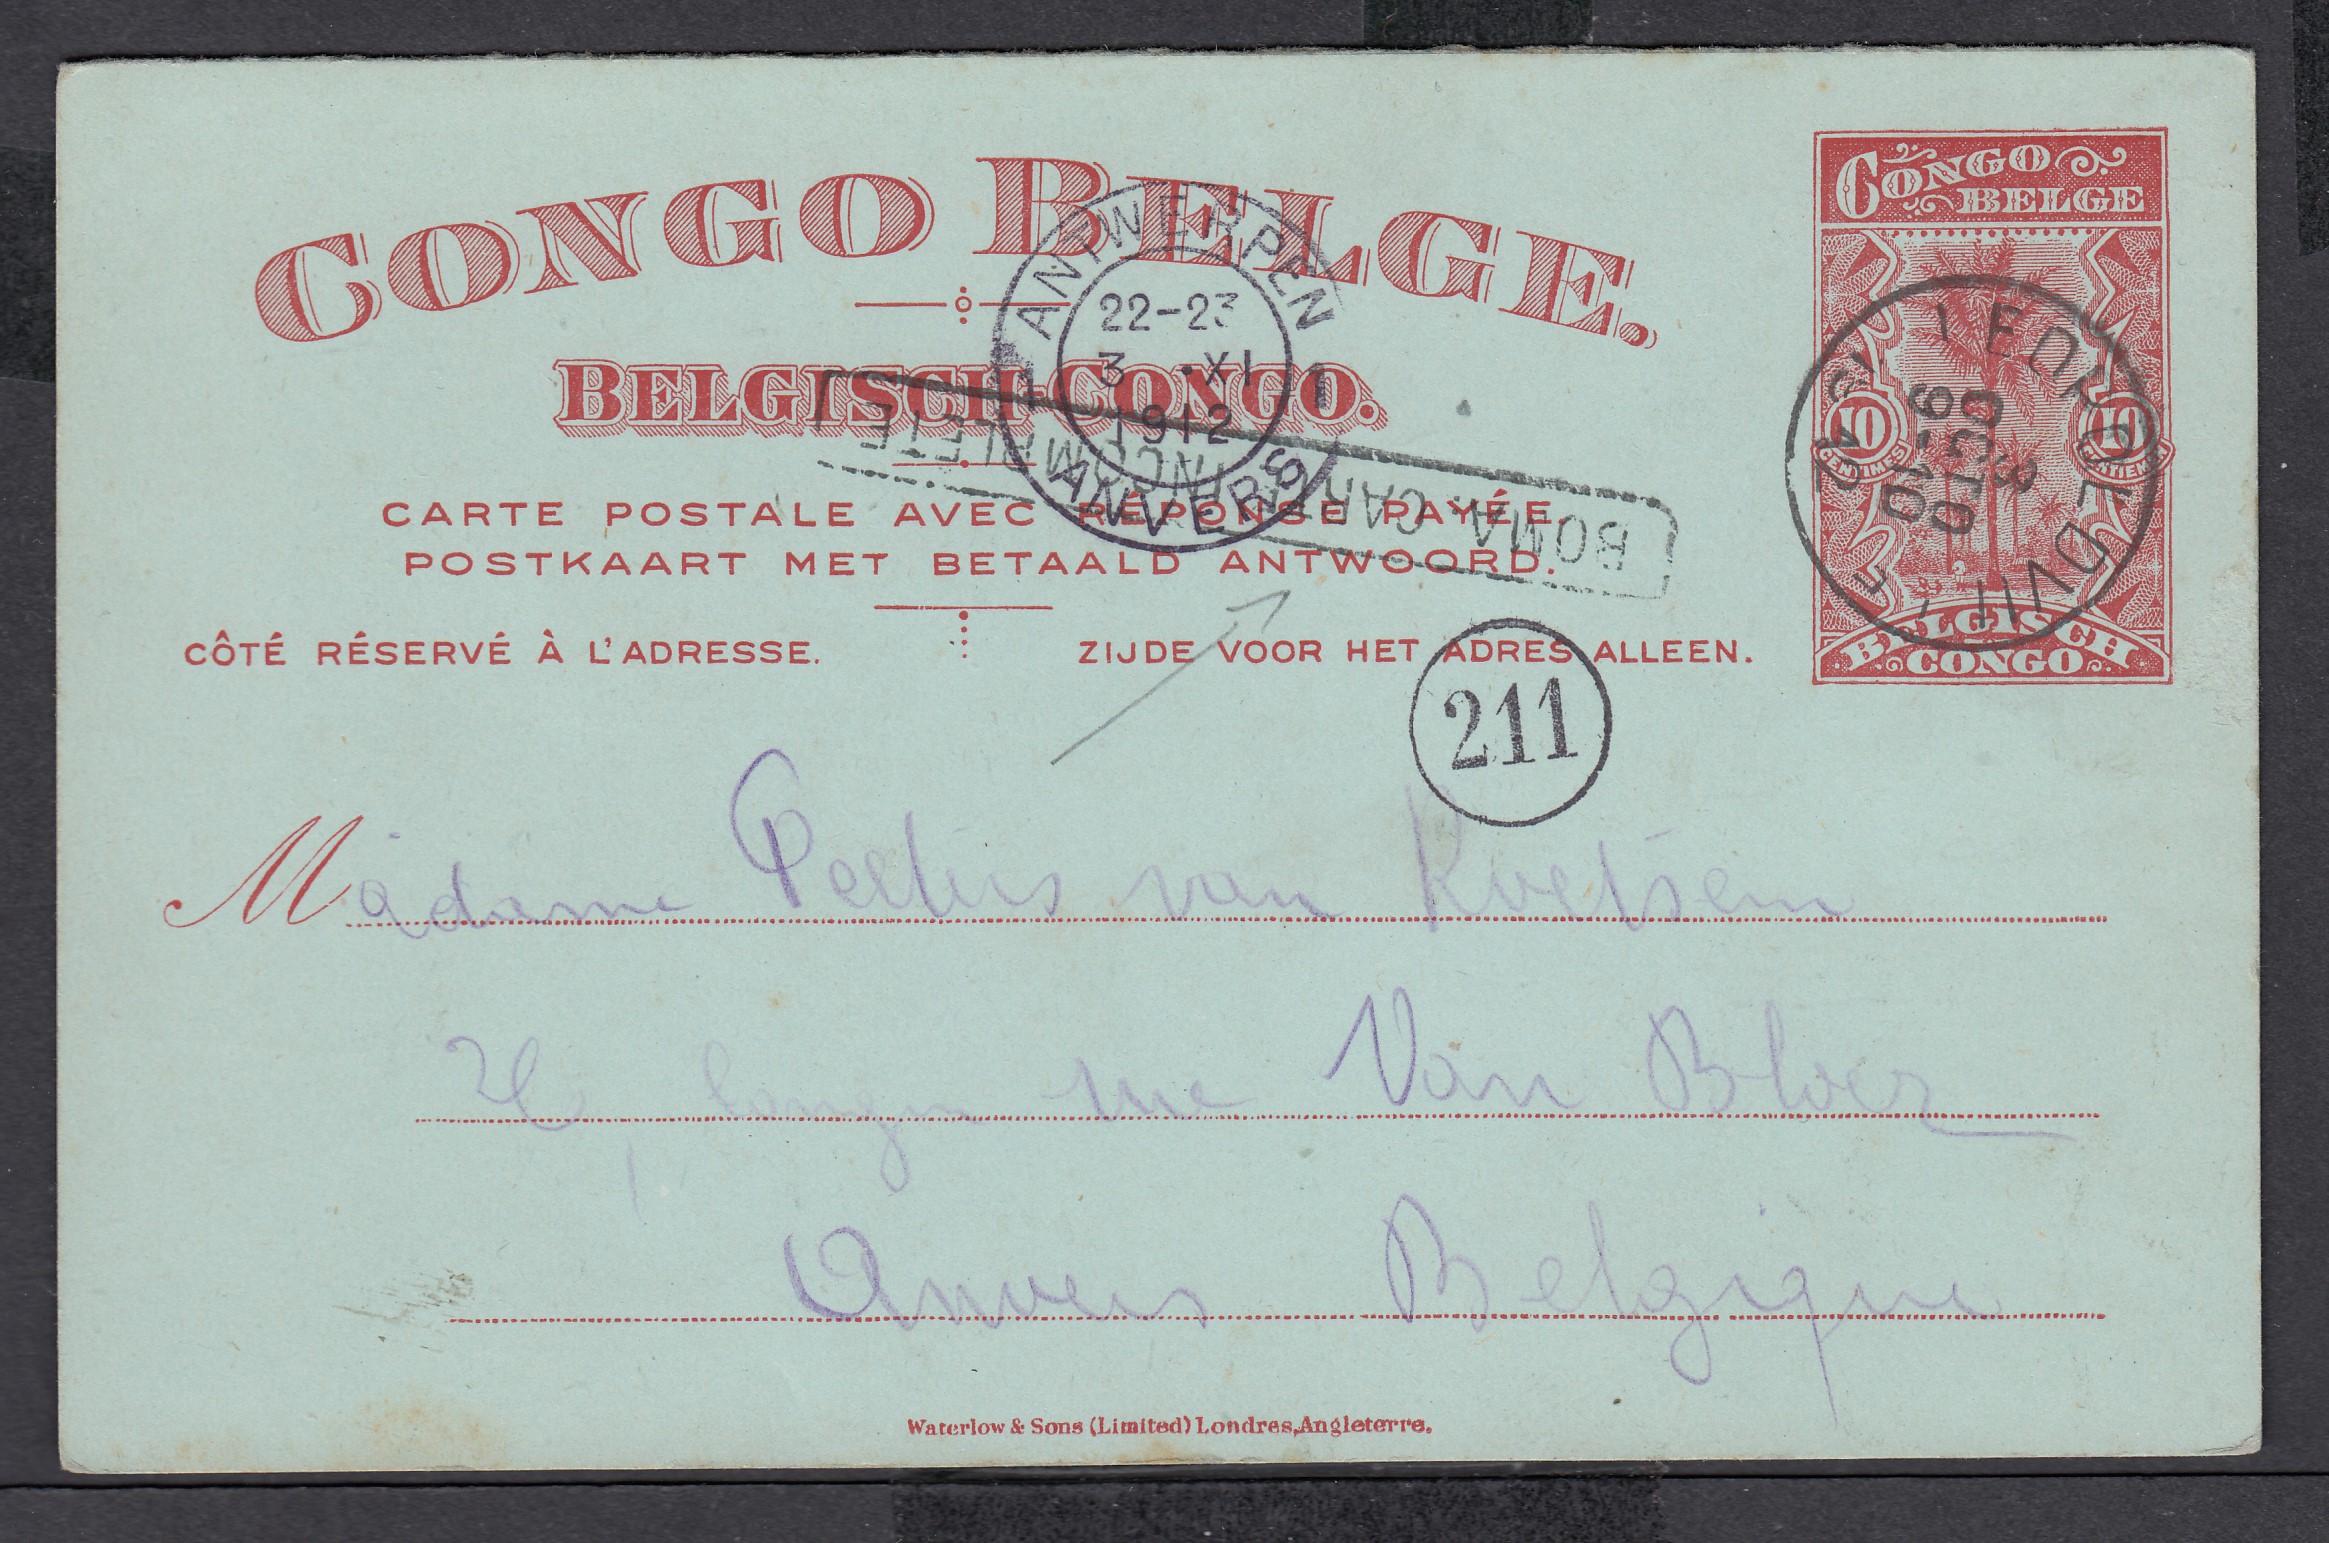 CONGO BELGE.
BELGISCH-CONGO.
CARTE POSTALE AVEC RÉPONSE PAYÉE.
POSTKAART MET BETAALD ANTWOORD.
CÔTÉ RÉSERVÉ À L'ADRESSE.
ZIJDE VOOR HET ADRES ALLEEN.
CONGO
BELGE
10 10
CENTIMES
BELGISCH
CONGO
LEOPOLDVILLE
3
OCTO
9-10
ANTWERPEN
22-23
3 ·XI
1912
ANVERS
1 1
BOMA - CARTE INCOMPLETE
211
Madame Peeters van
longue rue Van Bloer
Anvers Belgique
Waterlow & Sons (Limited) Londres, Angleterre.